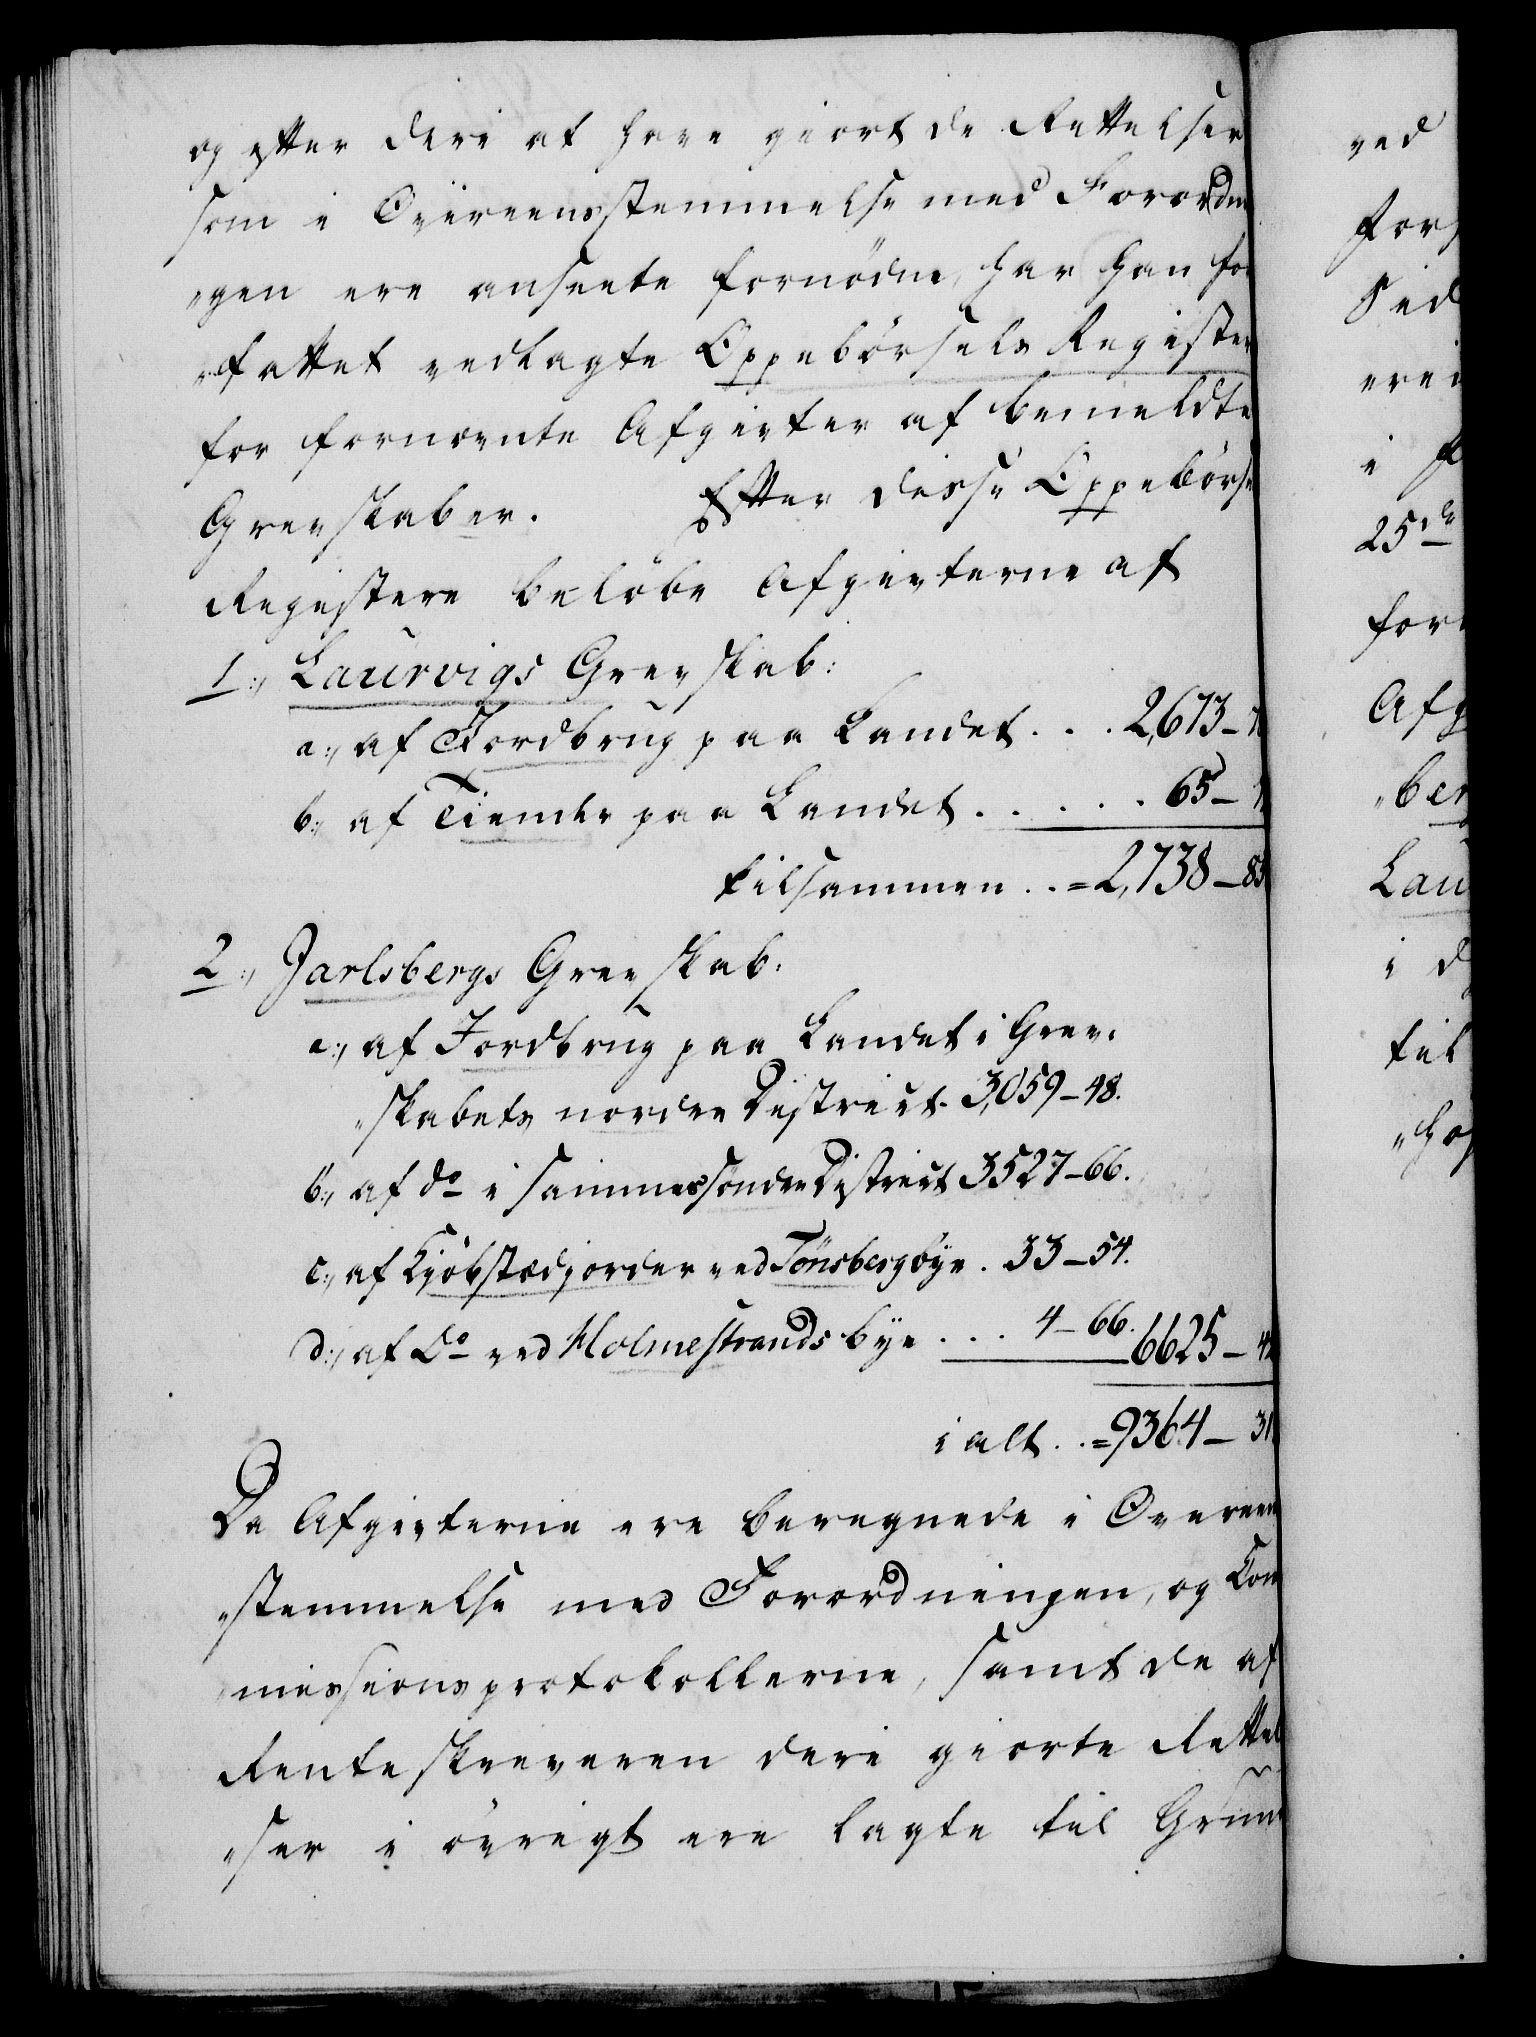 og efter deri at have giort de Rettelser
som i Overeensstemmelse med Forordn
"gen ere anseete fornödne, har han for
"fattet vedlagte Oppebörsels Register
for fornævnte Afgivter af bemeldte
Grevskaber. Efter disse Oppebörse
Registere belöbe Afgivterne af
1:, Laurvigs Grevskab:
a:, af Jordbrug paa Landet . . . 2,673 -
b:, af Tiender paa Landet . . . . . . 65 -
tilsammen . . = 2,738 - 85
2:, Jarlsbergs Grevskab:
a:, af Jordbrug paa Landet i Grev:
"skabets nordre District. 3,059 - 48.
b:, af do i sammes söndre District 3527 - 66.
c:, af Kjöbstædjorder ved Tönsberg bye . 33 - 54.
d:, af Do ved Holmestrands bye . . . 4 - 66. 6625 - 42
i alt . . = 9364 - 31
Da Afgivterne ere beregnede i Overeens
"stemmelse med Forordningen, og Kom
missionsprotokollerne, samt de af
Renteskriveren deri giorte Rettel
"ser i övrigt ere lagte til Grund
ved
for
Sid
ere
i
25de
for
Afg
"ber
Lau
i d
til
"ho